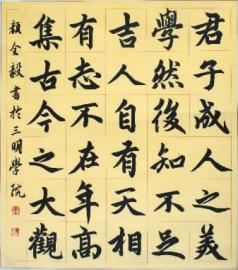 君子成人之美
學然後知不足
吉人自有天相
有志不在年高
集古今之大觀
顏全毅書於三明學院